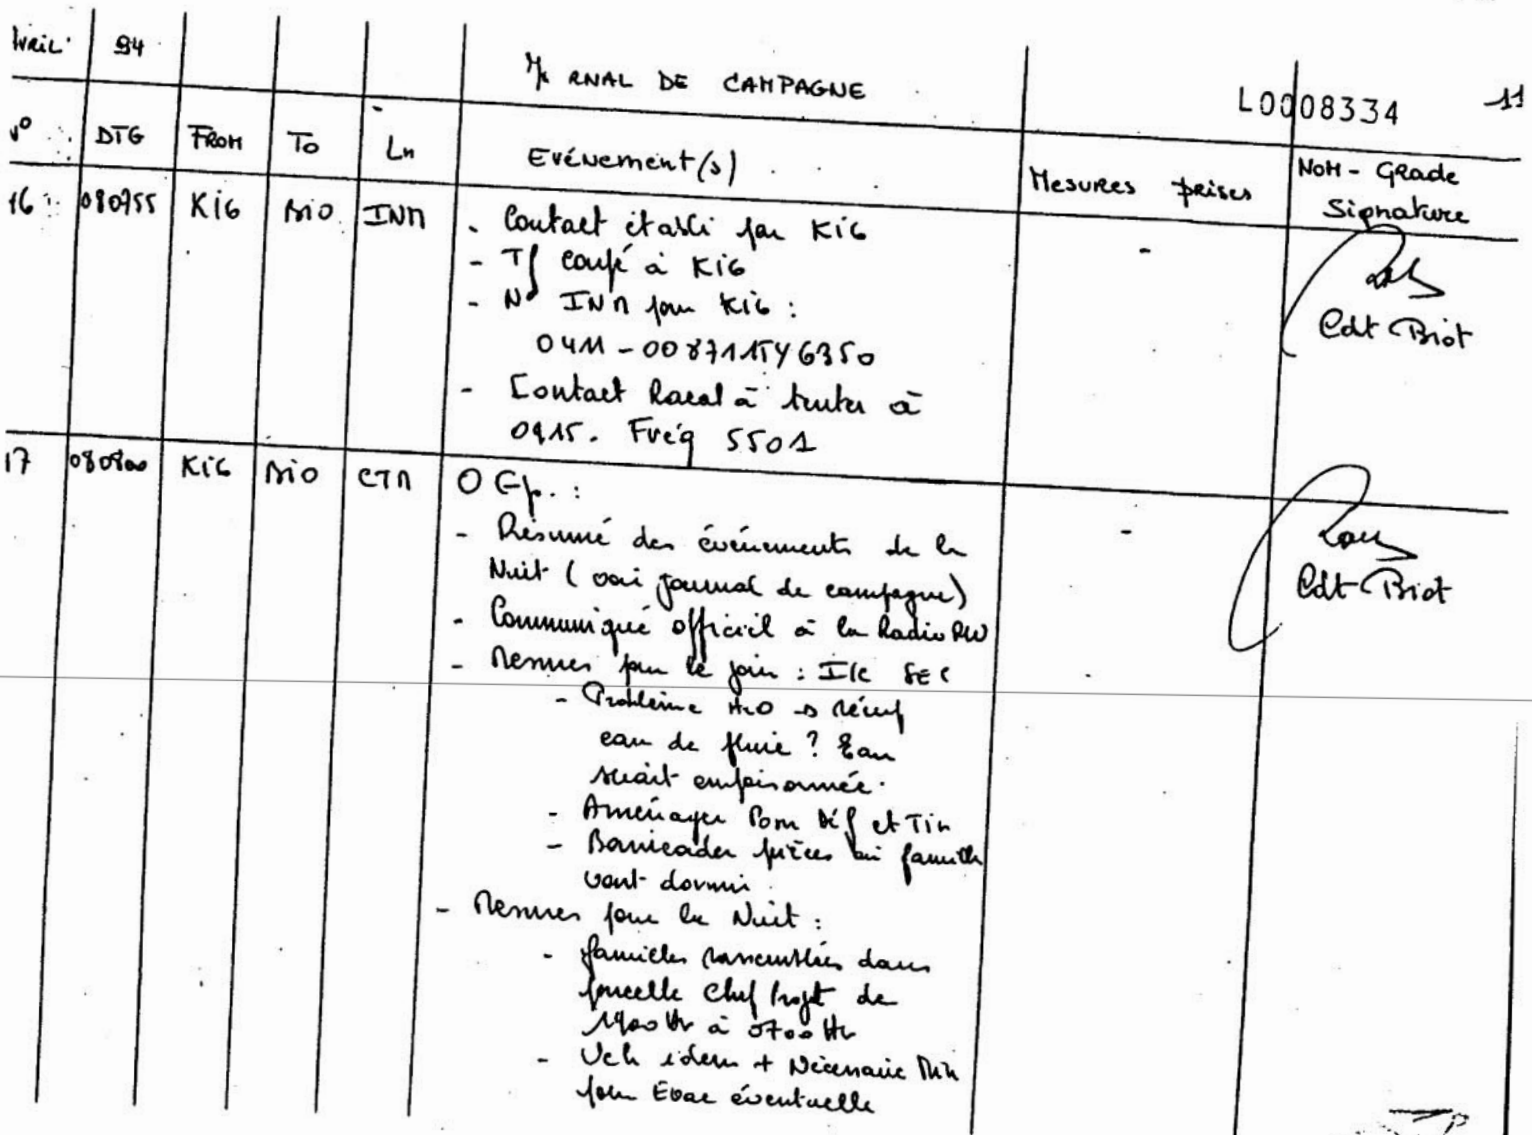 94
RNAL DE CAMPAGNE
L0008334 11
DTG FROM To Ln Evénement(s) Mesures prises NOM - Grade
Signature
16 080755 KiG INM - Contact établi par KiG -
- Tf coupé à KiG
- N° INM pour KiG :
Cdt Biot
- Contact Racal à tenter à
0915. Fréq 5501
17 KiG CTM O Gp. : -
- Résumé des événements de la
Nuit (voir journal de campagne)
Cdt Biot
- Communiqué officiel à la Radio RW
- Mesures pour le jour :
- Problème H2O → récup
eau de pluie ? Eau
serait empoisonnée.
- Aménager Pom Déf et Tir
- Barricader pièces où famille
vont dormir
- Mesures pour la Nuit :
- familles rassemblées dans
parcelle Chef Projt de
1900 Hr à 0700 Hr
- Veh idem + Nécessaire Min
pour Evac éventuelle